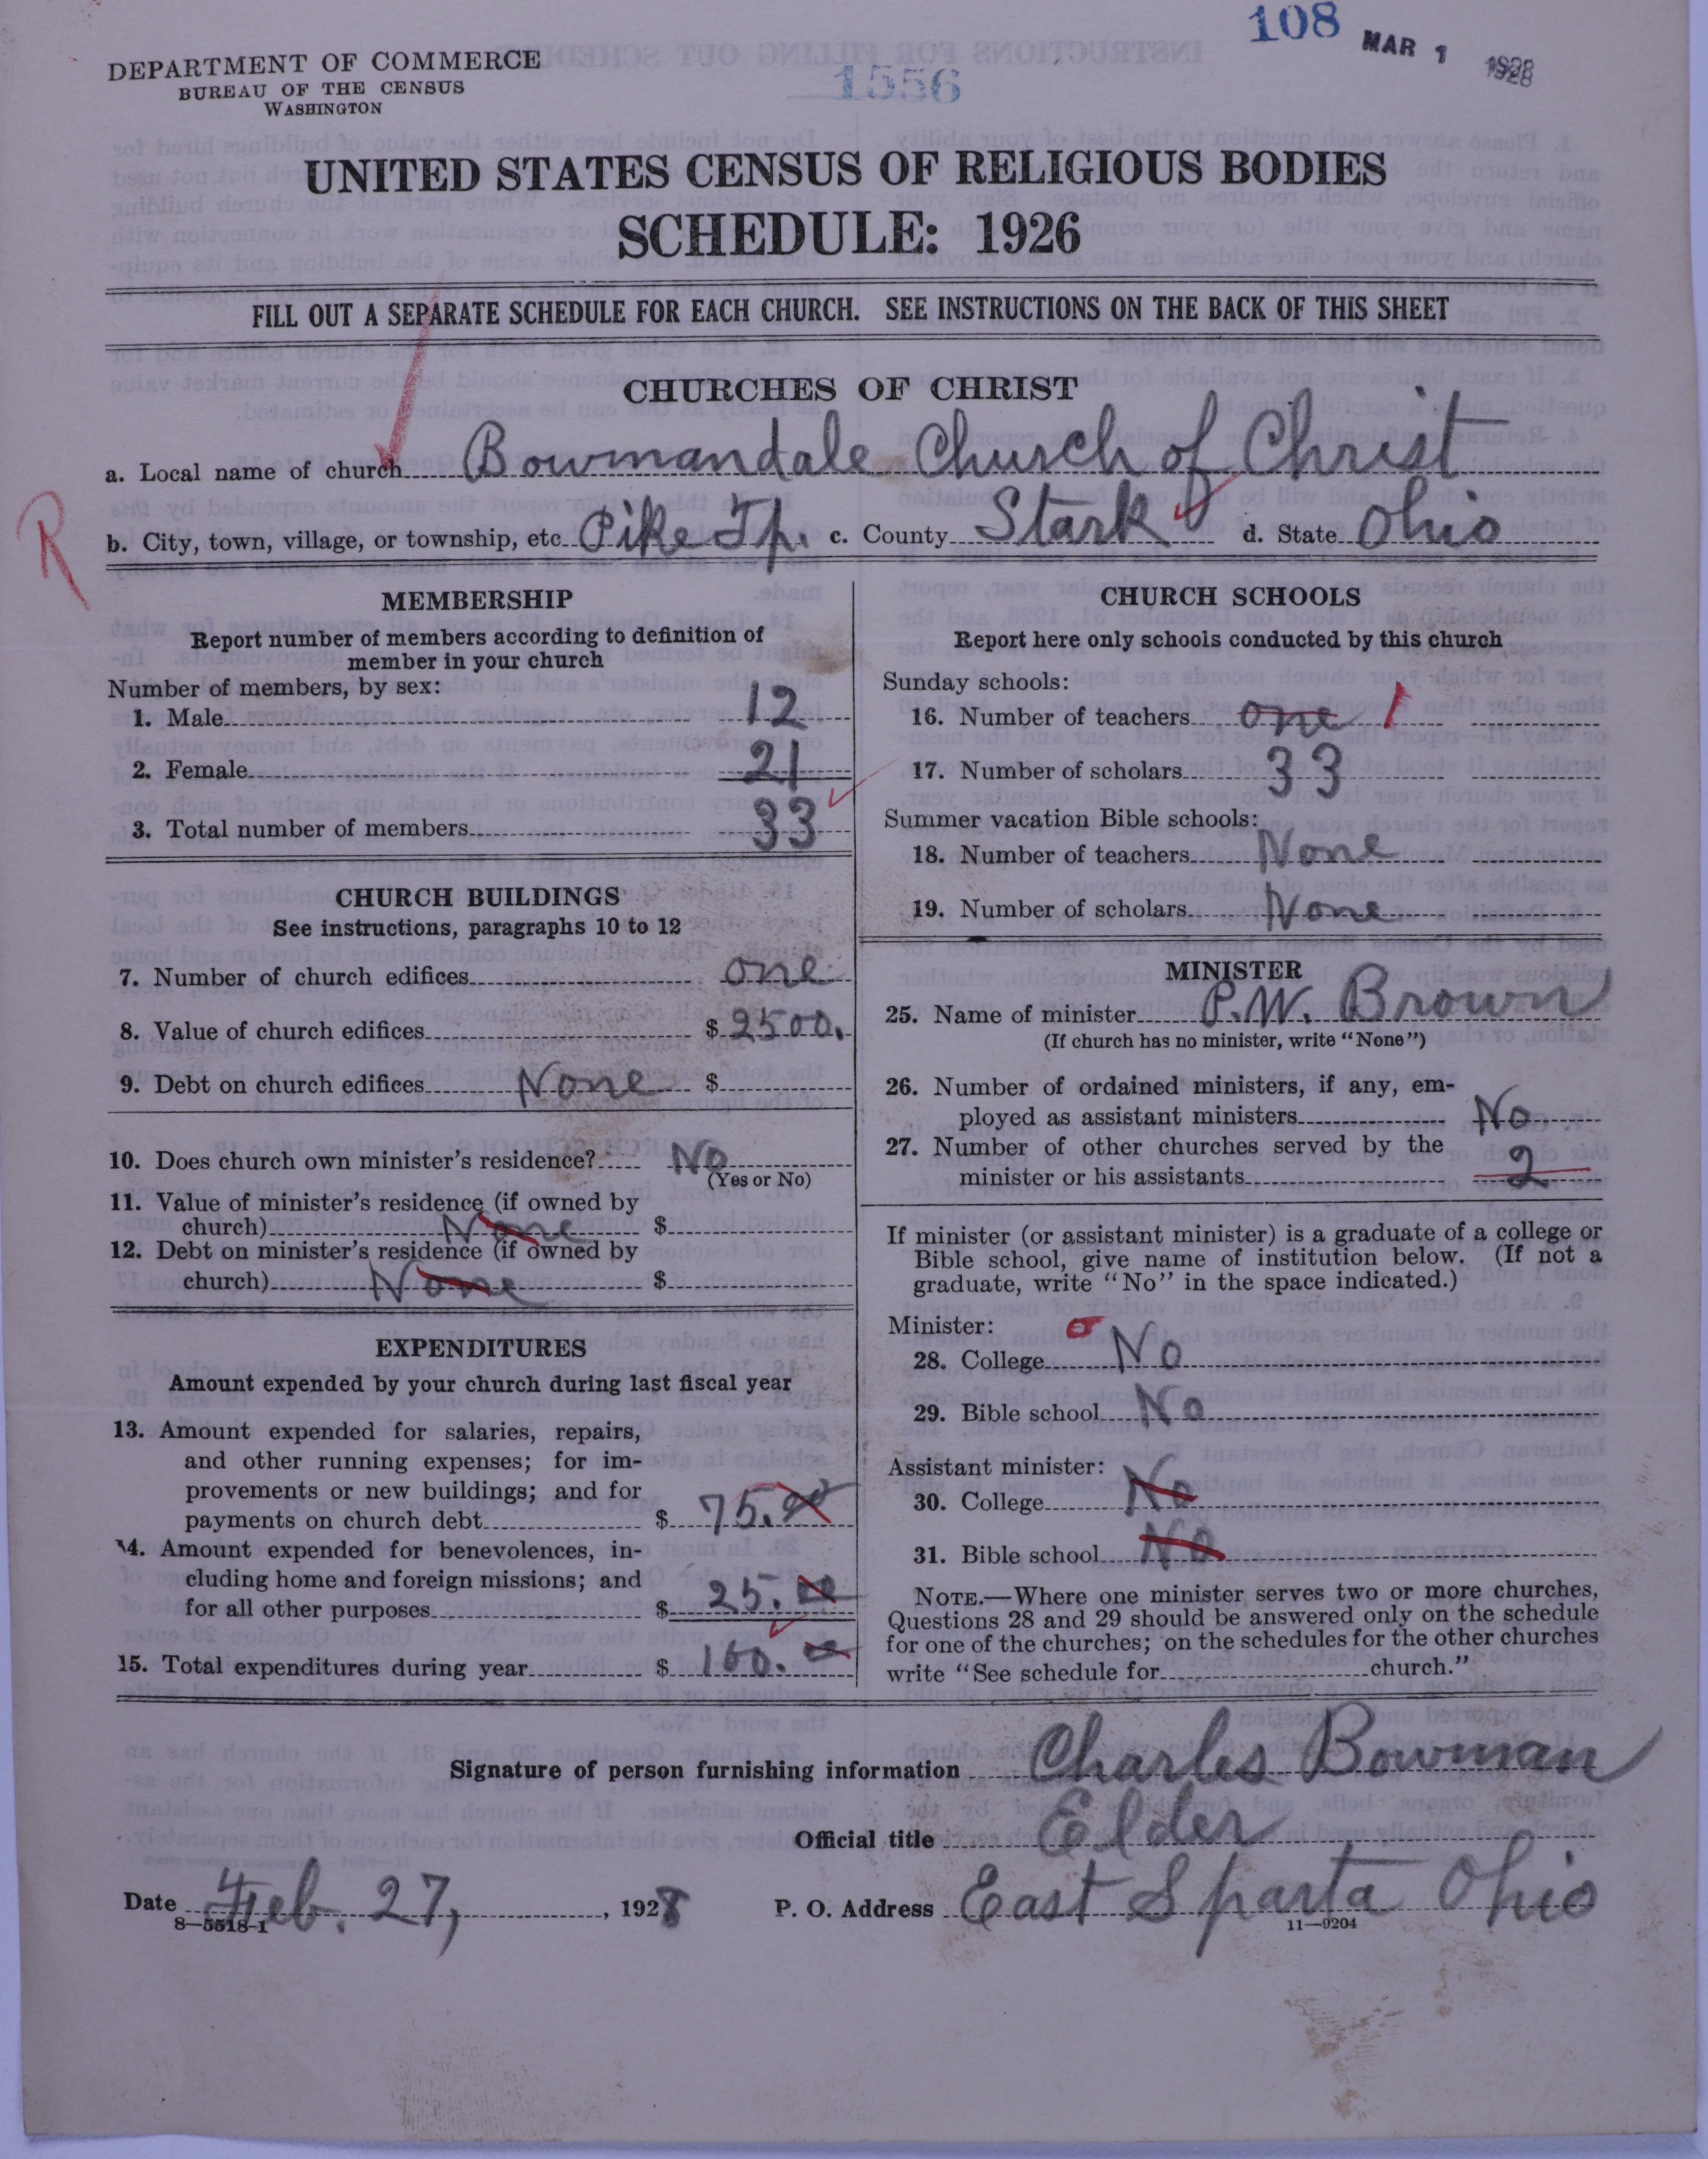 108 MAR 1 1928
1556
DEPARTMENT OF COMMERCE
BUREAU OF THE CENSUS
WASHINGTON
UNITED STATES CENSUS OF RELIGIOUS BODIES
SCHEDULE: 1926
FILL OUT A SEPARATE SCHEDULE FOR EACH CHURCH. SEE INSTRUCTIONS ON THE BACK OF THIS SHEET
CHURCHES OF CHRIST
a. Local name of church Bowmandale Church of Christ
R
b. City, town, village, or township, etc. Pike Tp. c. County Stark d. State Ohio
MEMBERSHIP
Report number of members according to definition of
member in your church
Number of members, by sex:
1. Male 12
2. Female 21
3. Total number of members 33
CHURCH BUILDINGS
See instructions, paragraphs 10 to 12
7. Number of church edifices one
8. Value of church edifices $ 2500.
9. Debt on church edifices None $
10. Does church own minister's residence? No
(Yes or No)
11. Value of minister's residence (if owned by
church) None $
12. Debt on minister's residence (if owned by
church) None $
EXPENDITURES
Amount expended by your church during last fiscal year
13. Amount expended for salaries, repairs,
and other running expenses; for im-
provements or new buildings; and for
payments on church debt $ 75.00
14. Amount expended for benevolences, in-
cluding home and foreign missions; and
for all other purposes $ 25.00
15. Total expenditures during year $ 100.00
CHURCH SCHOOLS
Report here only schools conducted by this church
Sunday schools:
16. Number of teachers one 1
17. Number of scholars 33
Summer vacation Bible schools:
18. Number of teachers None
19. Number of scholars None
MINISTER
25. Name of minister P.W. Brown
(If church has no minister, write "None")
26. Number of ordained ministers, if any, em-
ployed as assistant ministers No
27. Number of other churches served by the
minister or his assistants 2
If minister (or assistant minister) is a graduate of a college or
Bible school, give name of institution below. (If not a
graduate, write "No" in the space indicated.)
Minister:
28. College No
29. Bible school No
Assistant minister:
30. College No
31. Bible school No
NOTE.—Where one minister serves two or more churches,
Questions 28 and 29 should be answered only on the schedule
for one of the churches; on the schedules for the other churches
write "See schedule for church."
Signature of person furnishing information Charles Bowman
Official title Elder
Date Feb. 27, 1928 P. O. Address East Sparta Ohio
8—5518-1 11—9204